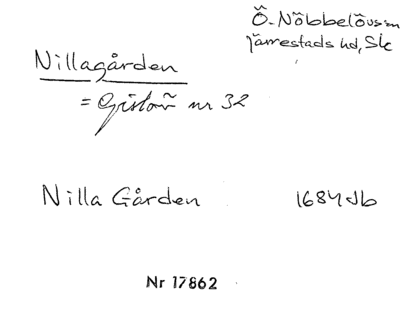 Ö. Nöbbelövs sn
Järrestads hd, Sk
Nillagården
= Gislöv nr 32
Nilla Gården 1684 Jb
Nr 17862